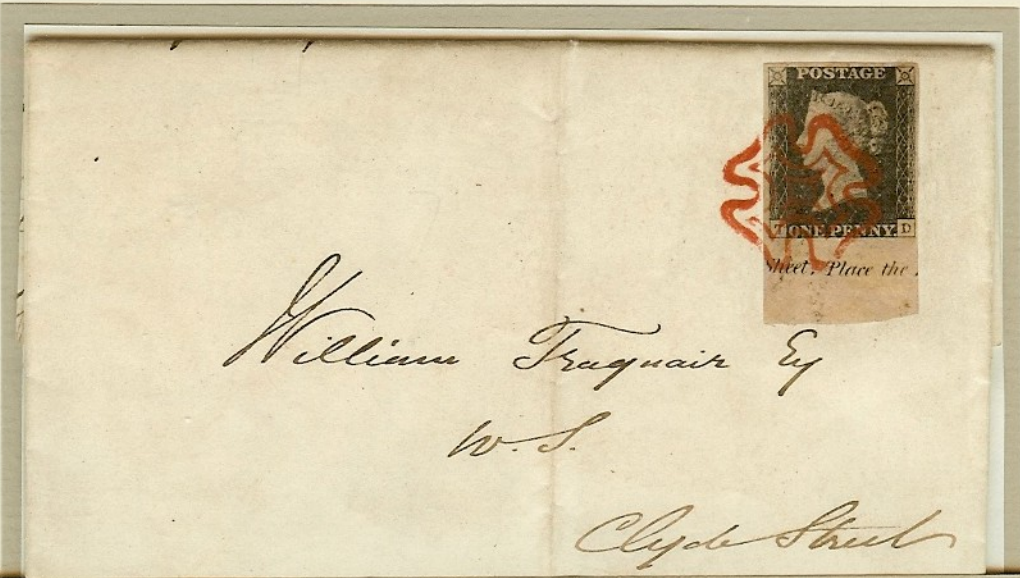 POSTAGE
T ONE PENNY. D
Sheet. Place the
William Traquair Esq
W. S.
Clyde Street